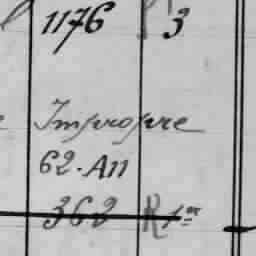 1176 3
Impropre
62-A11
362 R 1er